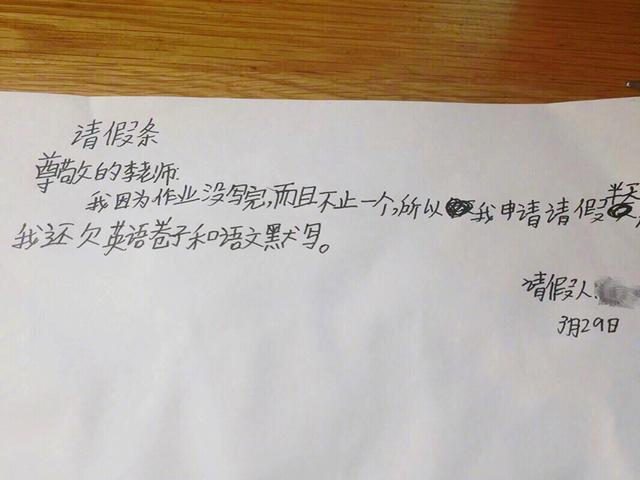 请假条
尊敬的李老师:
我因为作业没写完,而且不止一个,所以我申请请假半天,
我还欠英语卷子和语文默写。
请假人:
3月29日